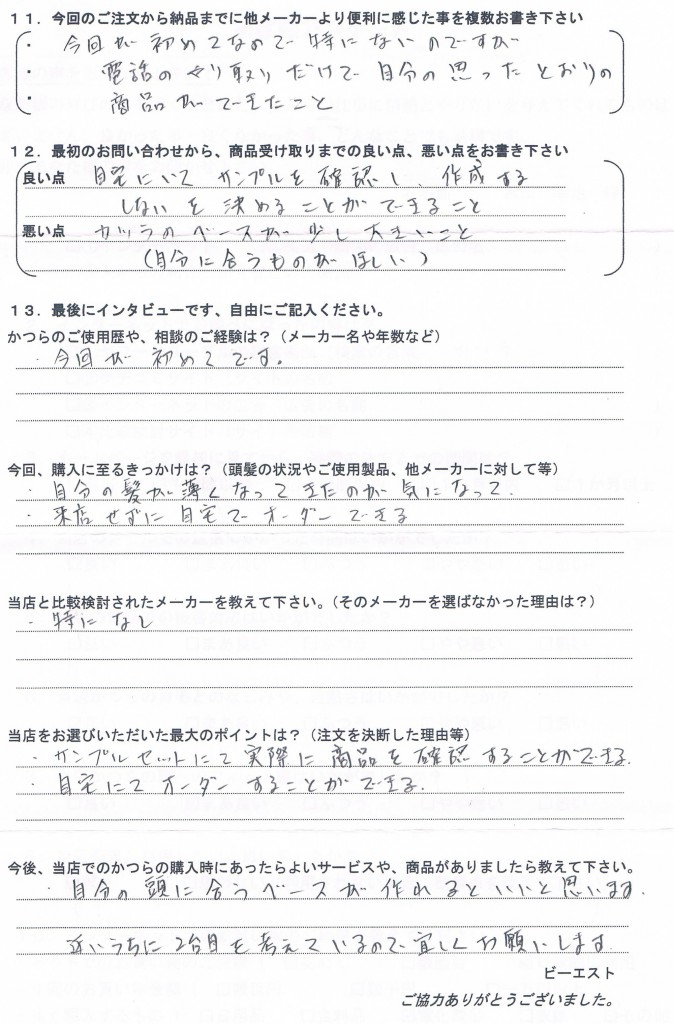 11．今回のご注文から納品までに他メーカーより便利に感じた事を複数お書き下さい
・今回が初めてなので特にないのですが
・電話のやり取りだけで自分の思ったとおりの
・商品ができたこと
12．最初のお問い合わせから、商品受け取りまでの良い点、悪い点をお書き下さい
良い点 自宅にいてサンプルを確認し、作成する
しないを決めることができること
悪い点 カツラのベースが少し大きいこと
(自分に合うものがほしい)
13．最後にインタビューです、自由にご記入ください。
かつらのご使用歴や、相談のご経験は？（メーカー名や年数など）
・今回が初めてです。
今回、購入に至るきっかけは？（頭髪の状況やご使用製品、他メーカーに対して等）
・自分の髪が薄くなってきたのが気になって.
・来店せずに自宅でオーダーできる
当店と比較検討されたメーカーを教えて下さい。（そのメーカーを選ばなかった理由は？）
・特になし
当店をお選びいただいた最大のポイントは？（注文を決断した理由等）
・サンプルセットにて実際に商品を確認することができる.
・自宅にてオーダーすることができる.
今後、当店でのかつらの購入時にあったらよいサービスや、商品がありましたら教えて下さい。
・自分の頭に合うベースが作れるといいと思います.
近いうちに2台目を考えているので宜しくお願いします.
ビーエスト
ご協力ありがとうございました。